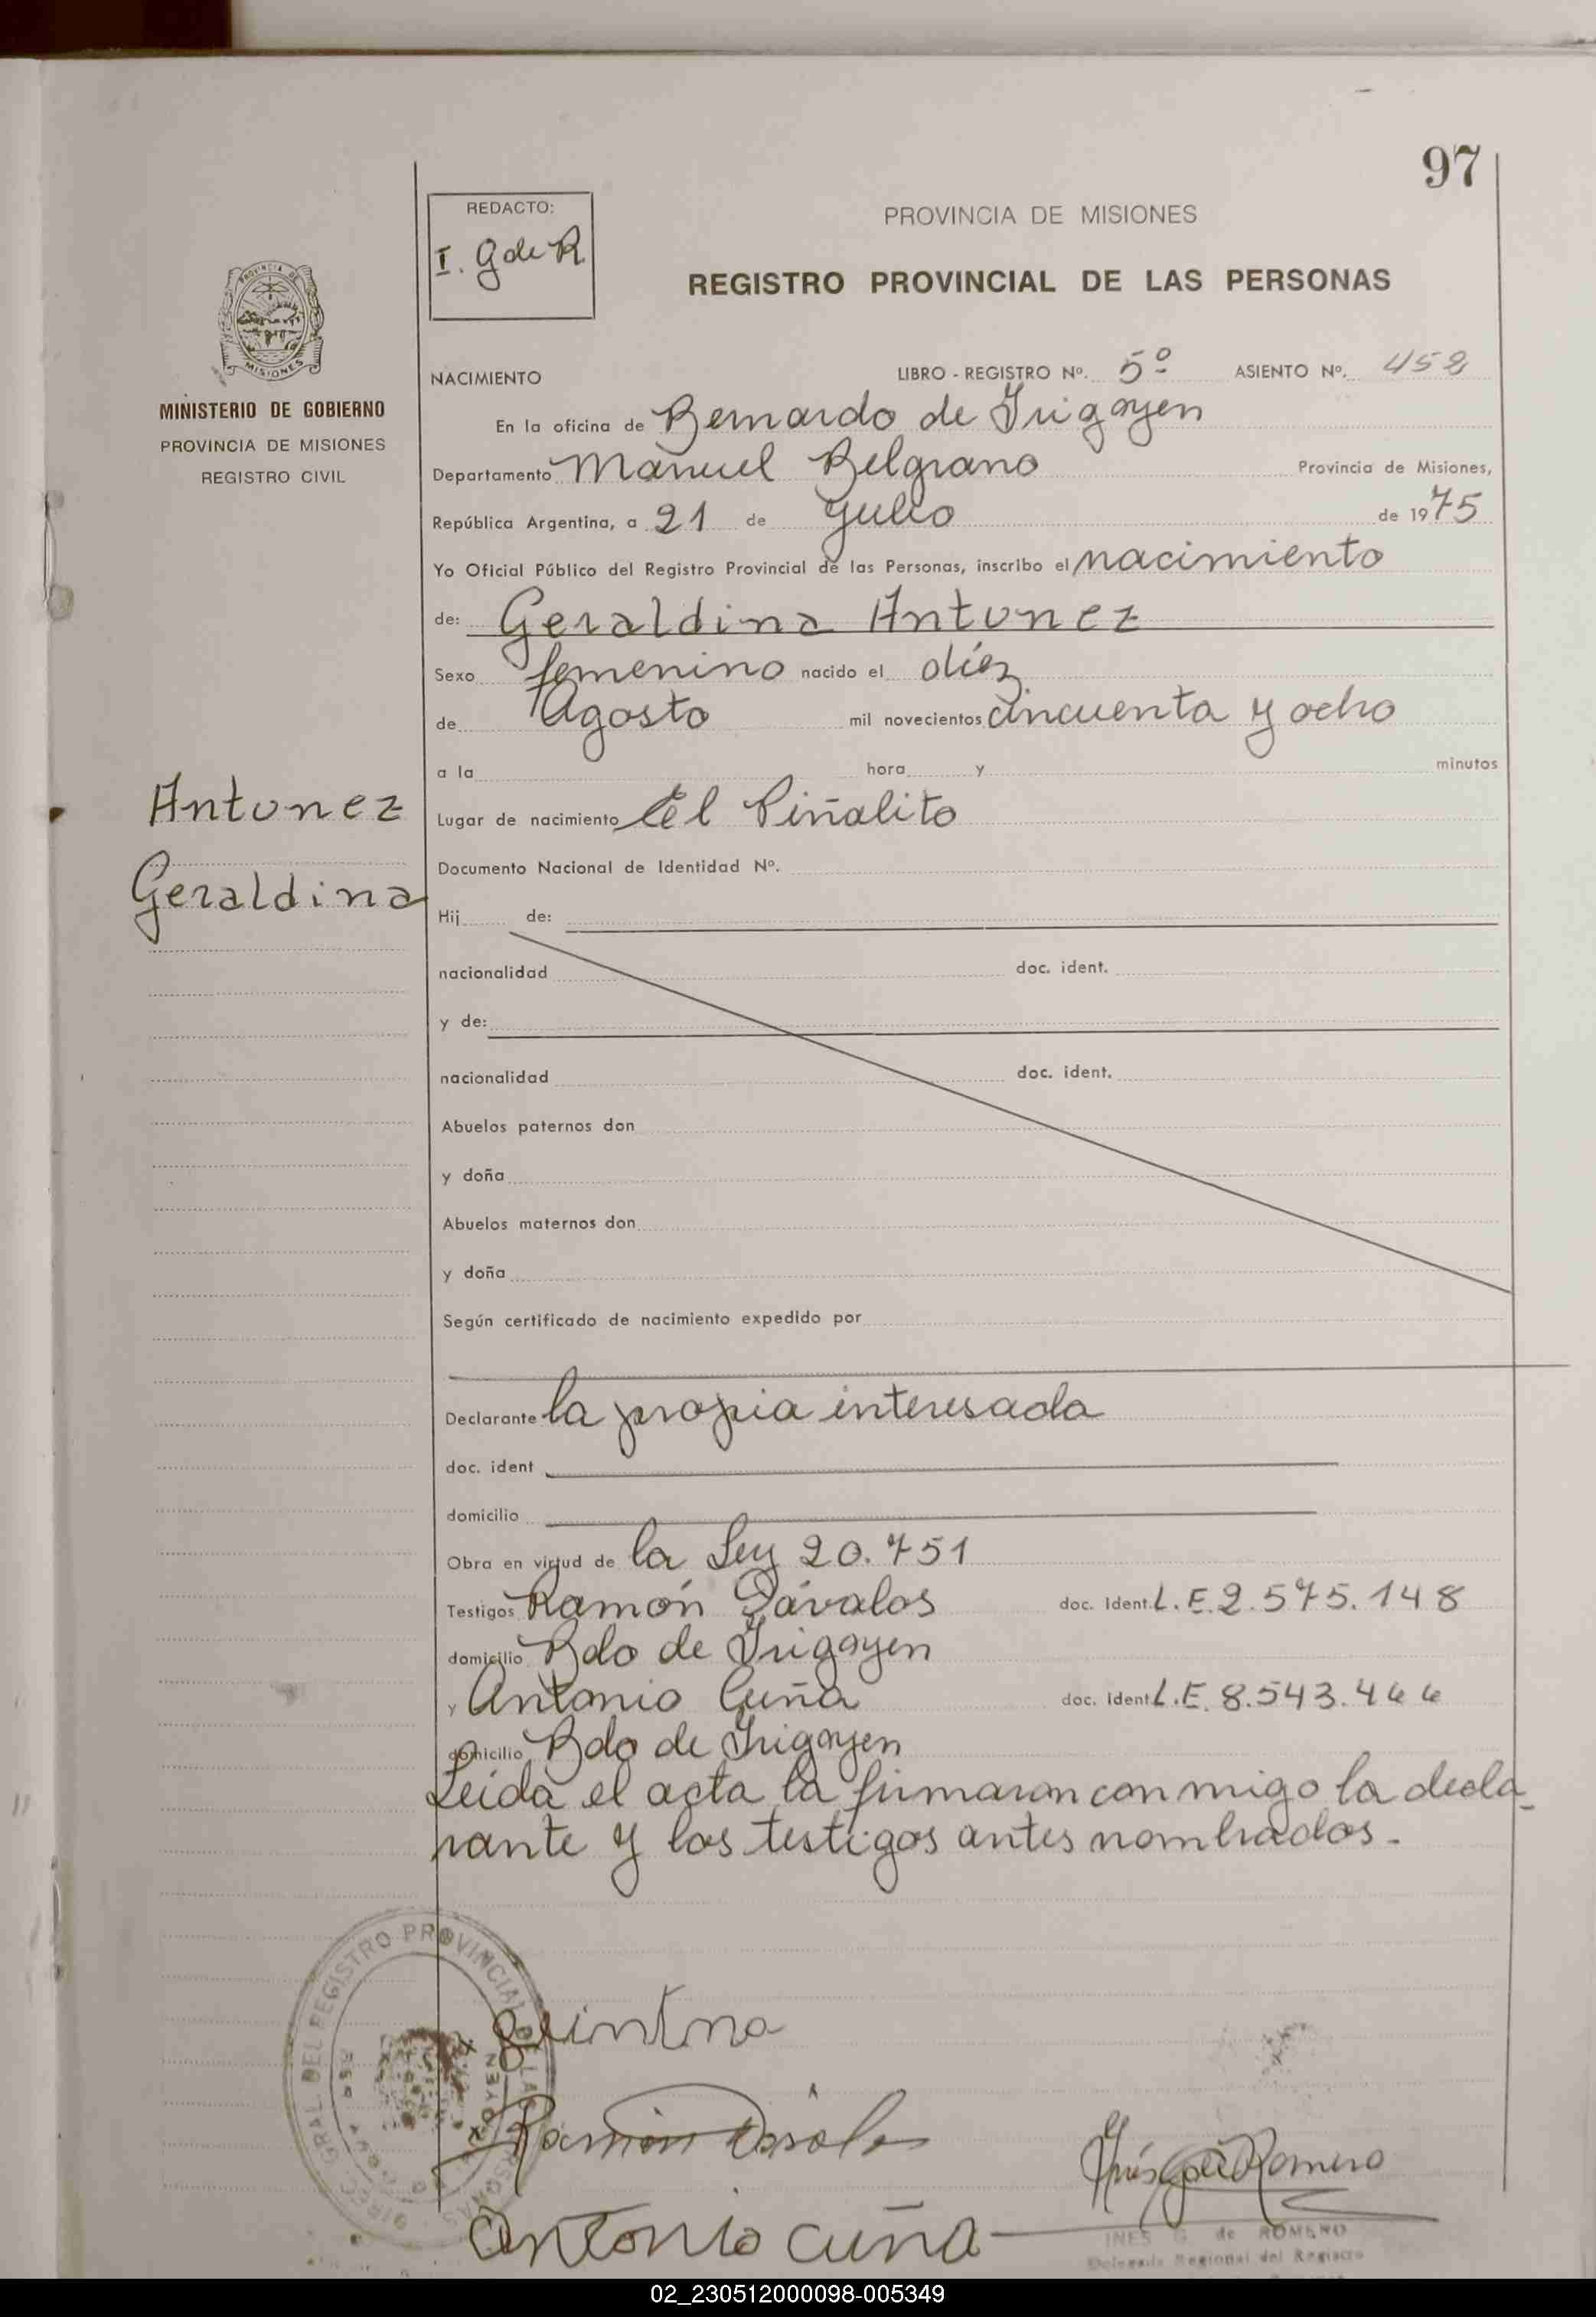 97
REDACTO:
I. G de R
PROVINCIA DE MISIONES
REGISTRO PROVINCIAL DE LAS PERSONAS
PROVINCIA DE
MISIONES
MINISTERIO DE GOBIERNO
PROVINCIA DE MISIONES
REGISTRO CIVIL
NACIMIENTO LIBRO - REGISTRO Nº. 5º ASIENTO Nº. 458
En la oficina de Bernardo de Irigoyen
Departamento Manuel Belgrano Provincia de Misiones,
República Argentina, a 21 de Julio de 1975
Yo Oficial Público del Registro Provincial de las Personas, inscribo el nacimiento
de: Geraldina Antunez
Sexo femenino nacido el diez
de Agosto mil novecientos cincuenta y ocho
a la hora y minutos
Antunez
Geraldina
Lugar de nacimiento El Piñalito
Documento Nacional de Identidad Nº.
Hij de:
nacionalidad doc. ident.
y de:
nacionalidad doc. ident.
Abuelos paternos don
y doña
Abuelos maternos don
y doña
Según certificado de nacimiento expedido por
Declarante la propia interesada
doc. ident
domicilio
Obra en virtud de la Ley 20.751
Testigos Ramón Dávalos doc. Ident L.E. 2.575.148
domicilio Bdo de Irigoyen
y Antonio Cuña doc. Ident L.E. 8.543.466
domicilio Bdo de Irigoyen
Leida el acta la firmaron conmigo la decla-
rante y los testigos antes nombrados.
DIREC. GRAL. DEL REGISTRO PROVINCIAL DE LAS PERSONAS
Antonio cuña
INES G. de ROMERO
Delegada Regional del Registro
02_230512000098-005349